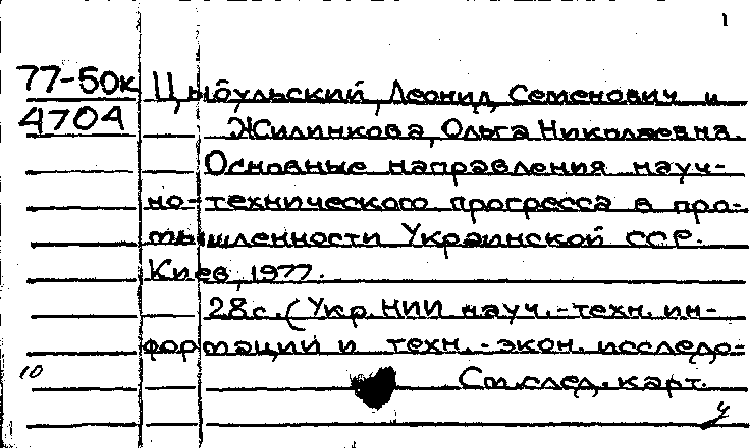 1
77-50к Цыбульский, Леонид Семенович и
4704 Жилинкова, Ольга Николаевна.
Основные направления науч-
но-технического прогресса в про-
мышленности Украинской ССР.
Киев, 1977.
28с. (Укр. НИИ науч.-техн. ин-
формации и техн.-экон. исследо-
10 См. след. карт.